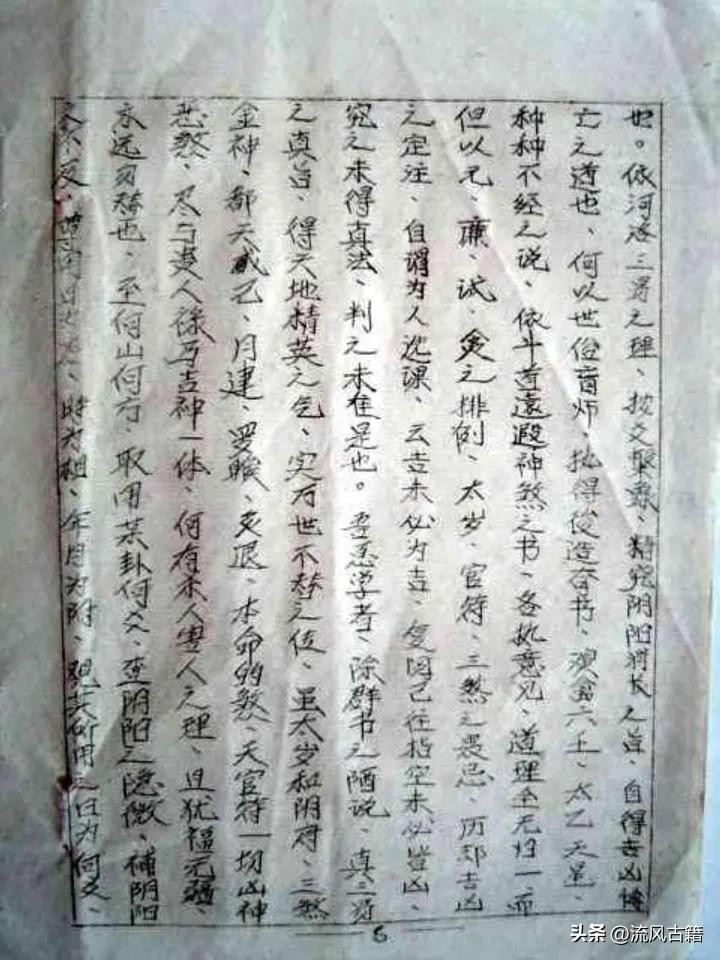 也。依河洛三易之理、按爻聚录、精究阴阳消长之旨、自得吉凶悔
亡之道也、何以世俗盲师、执得后造夺书、演禽六壬、太乙天星、
种种不经之说、依斗首遠遐神煞之书、各执意见、道理全无归一而
但以元、廉、武、贪之排例、太岁、官符、三煞之畏忌、历部吉凶
之定注、自谓为人选课、云吉未必为吉、复阅已往指空未必皆凶、
究之未得真法、判之未准是也。吾愿学者、除群书之陋说、真三易
之真旨、得天地精英之气、实万世不替之位、虽太岁和阴府、三煞
金神、都天戊己、月建、罗睺、灸退、本命的煞、天官符一切凶神
恶煞、尽与贵人禄马吉神一体、何有杀人害人之理、且犹福无疆、
永远勿替也、至何山何方、取用某卦何爻、查阴阳之隐微、補阴阳
之不及、 时为祖、年月为附、观其所用之日为何爻、
6
头条 @流风古籍